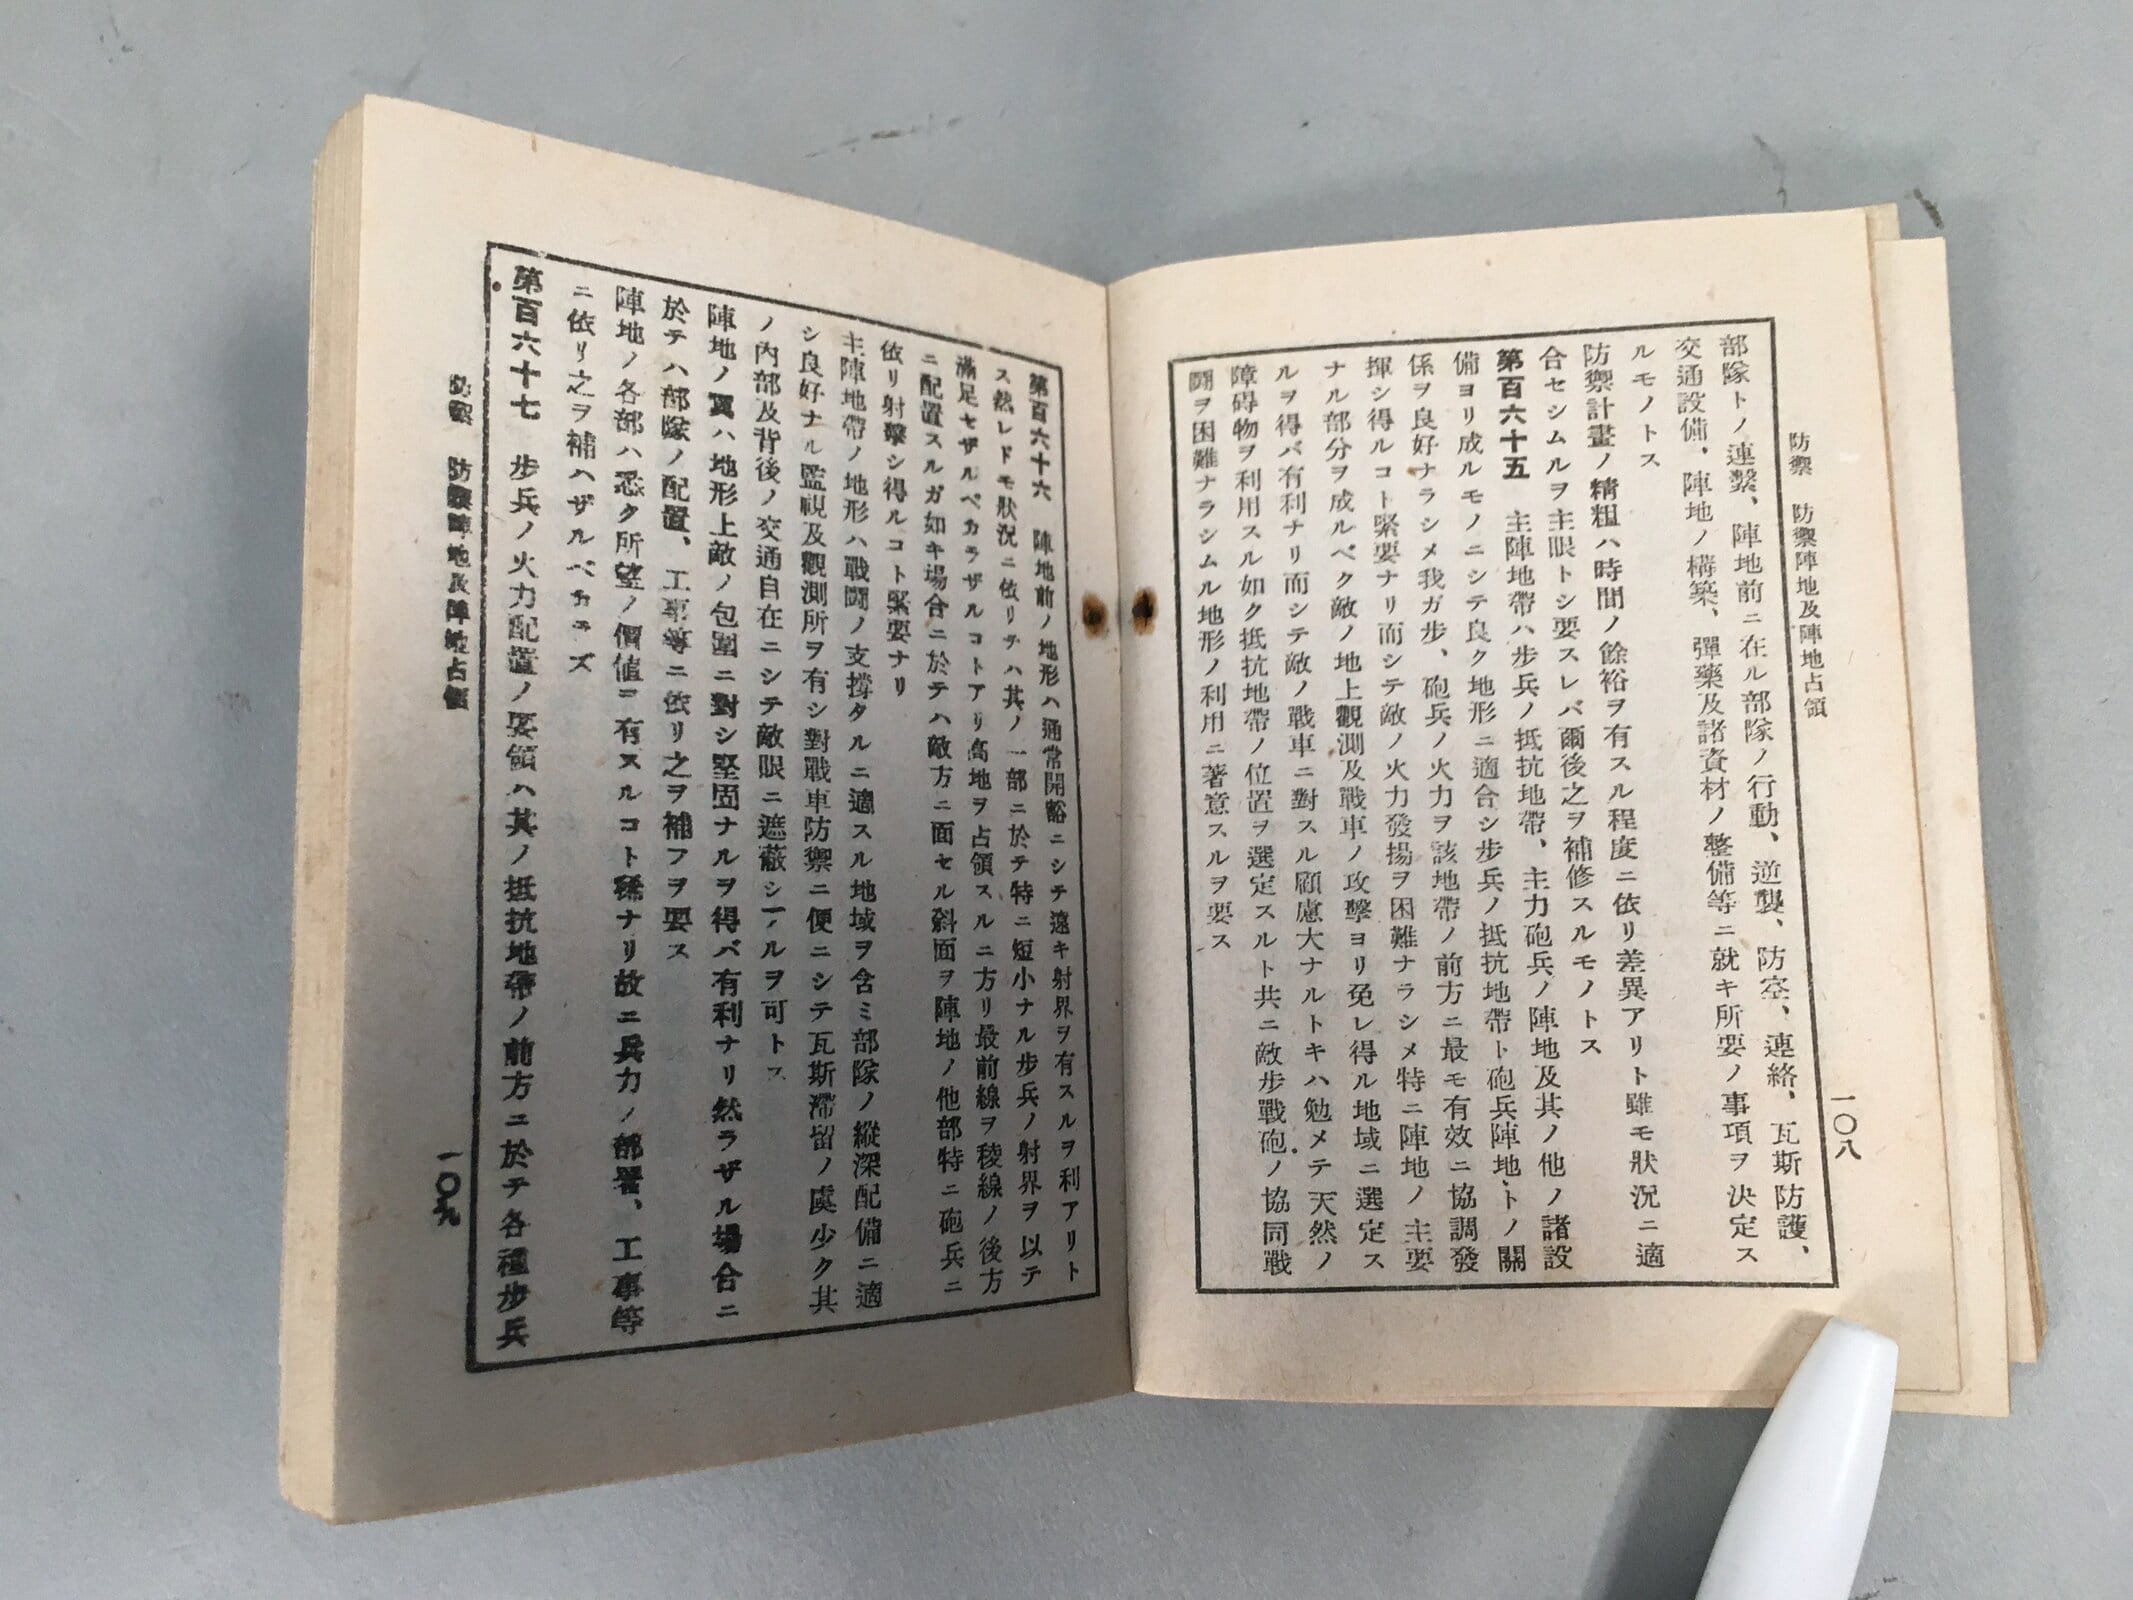 防禦 防禦陣地及陣地占領
一〇八
部隊トノ連繫、陣地前ニ在ル部隊ノ行動、逆襲、防空、連絡、瓦斯防護、
交通設備、陣地ノ構築、彈藥及諸資材ノ整備等ニ就キ所要ノ事項ヲ決定ス
ルモノトス
防禦計畫ノ精粗ハ時間ノ餘裕ヲ有スル程度ニ依リ差異アリト雖モ狀況ニ適
合セシムルヲ主眼トシ要スレバ爾後之ヲ補修スルモノトス
第百六十五 主陣地帶ハ步兵ノ抵抗地帶、主力砲兵ノ陣地及其ノ他ノ諸設
備ヨリ成ルモノニシテ良ク地形ニ適合シ步兵ノ抵抗地帶ト砲兵陣地トノ關
係ヲ良好ナラシメ我ガ步、砲兵ノ火力ヲ該地帶ノ前方ニ最モ有效ニ協調發
揮シ得ルコト緊要ナリ而シテ敵ノ火力發揚ヲ困難ナラシメ特ニ陣地ノ主要
ナル部分ヲ成ルベク敵ノ地上觀測及戰車ノ攻擊ヨリ免レ得ル地域ニ選定ス
ルヲ得バ有利ナリ而シテ敵ノ戰車ニ對スル顧慮大ナルトキハ勉メテ天然ノ
障碍物ヲ利用スル如ク抵抗地帶ノ位置ヲ選定スルト共ニ敵步戰砲ノ協同戰
鬪ヲ困難ナラシムル地形ノ利用ニ著意スルヲ要ス
第百六十六 陣地前ノ地形ハ通常開豁ニシテ遠キ射界ヲ有スルヲ利アリト
ス然レドモ狀況ニ依リテハ其ノ一部ニ於テ特ニ短小ナル步兵ノ射界ヲ以テ
滿足セザルベカラザルコトアリ高地ヲ占領スルニ方リ最前線ヲ稜線ノ後方
ニ配置スルガ如キ場合ニ於テハ敵方ニ面セル斜面ヲ陣地ノ他部特ニ砲兵ニ
依リ射擊シ得ルコト緊要ナリ
主陣地帶ノ地形ハ戰鬪ノ支撐タルニ適スル地域ヲ含ミ部隊ノ縱深配備ニ適
シ良好ナル監視及觀測所ヲ有シ對戰車防禦ニ便ニシテ瓦斯滯留ノ虞少ク其
ノ內部及背後ノ交通自在ニシテ敵眼ニ遮蔽シアルヲ可トス
陣地ノ翼ハ地形上敵ノ包圍ニ對シ堅固ナルヲ得バ有利ナリ然ラザル場合ニ
於テハ部隊ノ配置、工事等ニ依リ之ヲ補フヲ要ス
陣地ノ各部ハ悉ク所望ノ價値ヲ有スルコト稀ナリ故ニ兵力ノ部署、工事等
ニ依リ之ヲ補ハザルベカラズ
第百六十七 步兵ノ火力配置ノ要領ハ其ノ抵抗地帶ノ前方ニ於テ各種步兵
防禦 防禦陣地及陣地占領
一〇九